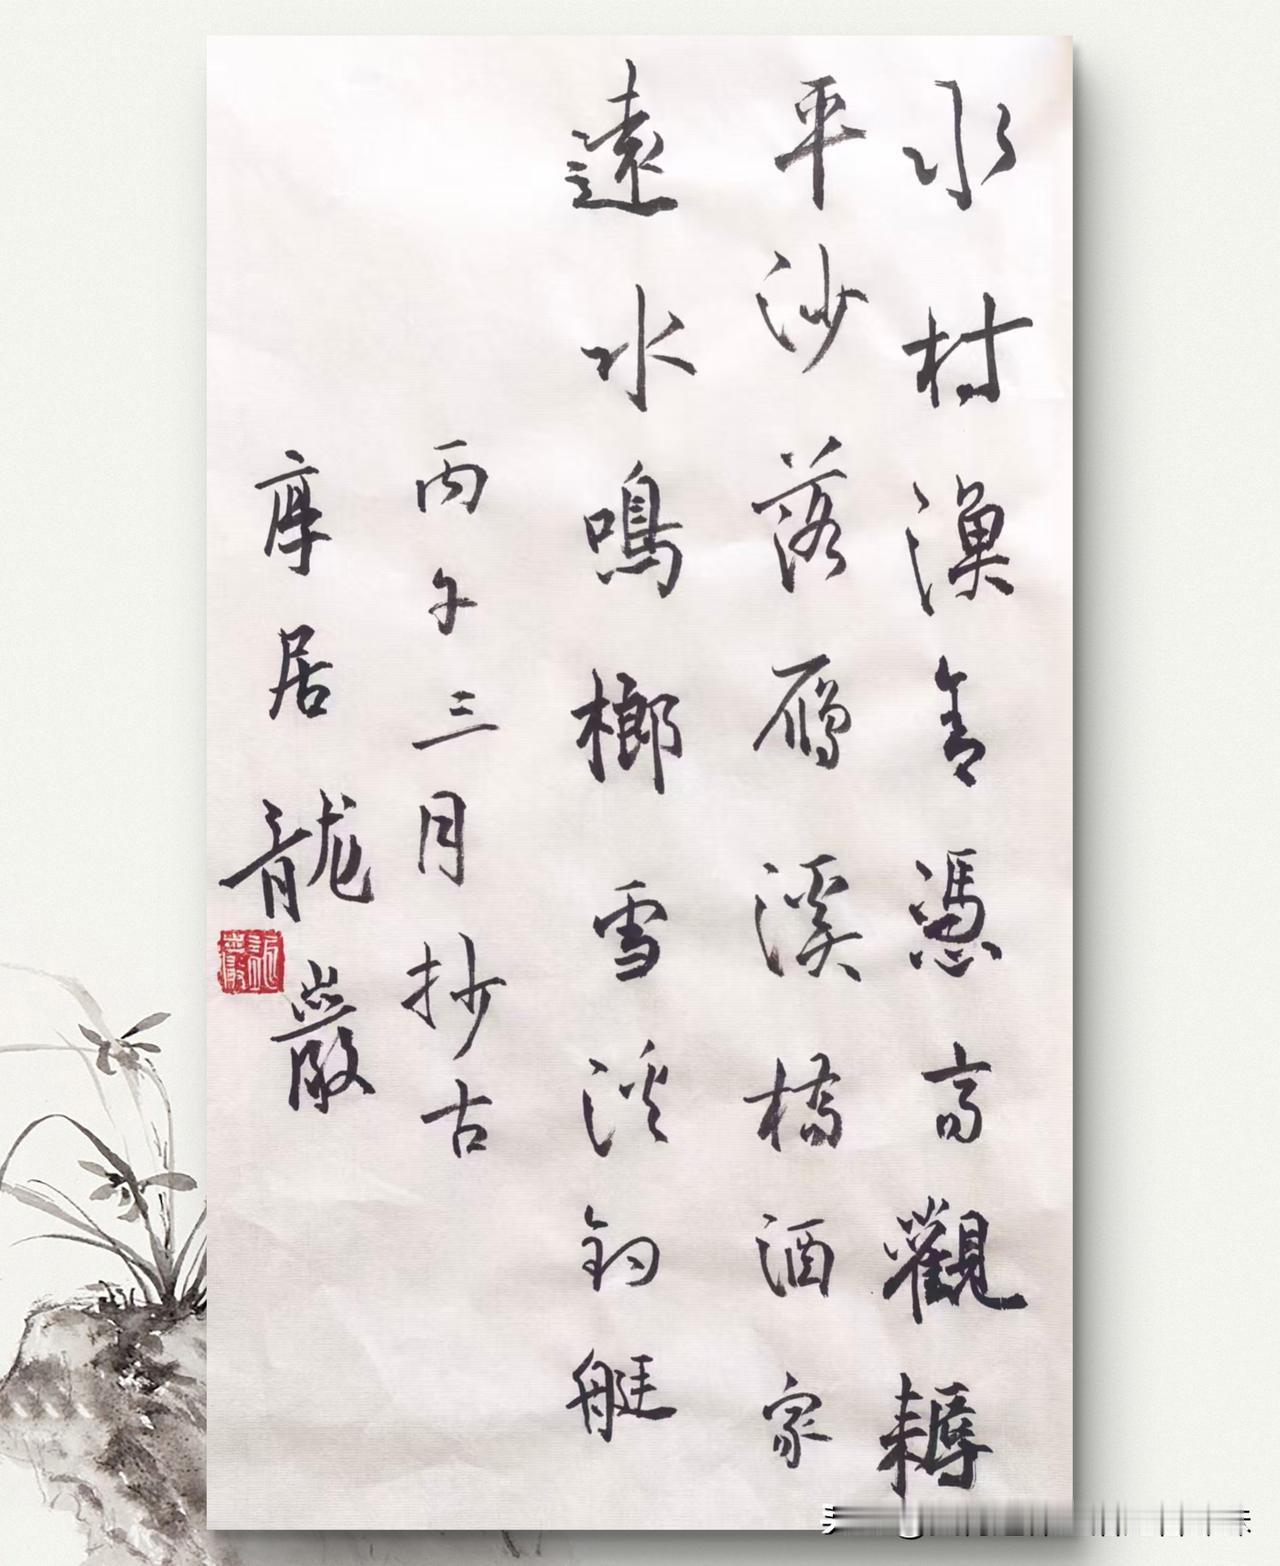 水村漁舍憑高觀耨
平沙落鴈溪橋酒家
遠水鳴榔雪溪釣艇
丙午三月抄古
厚居龍巖